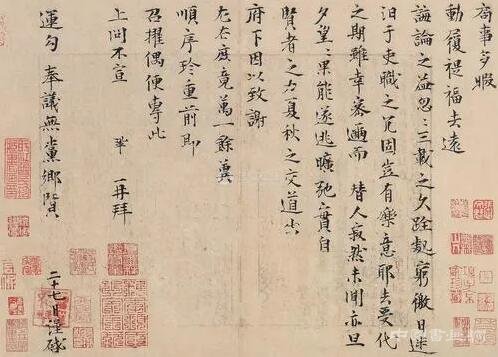 局事多暇
動履禔福去遠
誨論之益忽忽三載之久跧處窮徼日迷
汨于吏職之冗固豈有樂意耶去受代
之期雖幸密邇而替人寂然未聞亦旦
夕望望果能遂逃曠弛實自
賢者之力夏秋之交道出
府下因以致謝
左右庶竟萬一餘冀
順序珍重前即
召擢偶便專此
上問不宣 鞏再拜
運勾奉議無黨鄉賢
二十七日謹啟